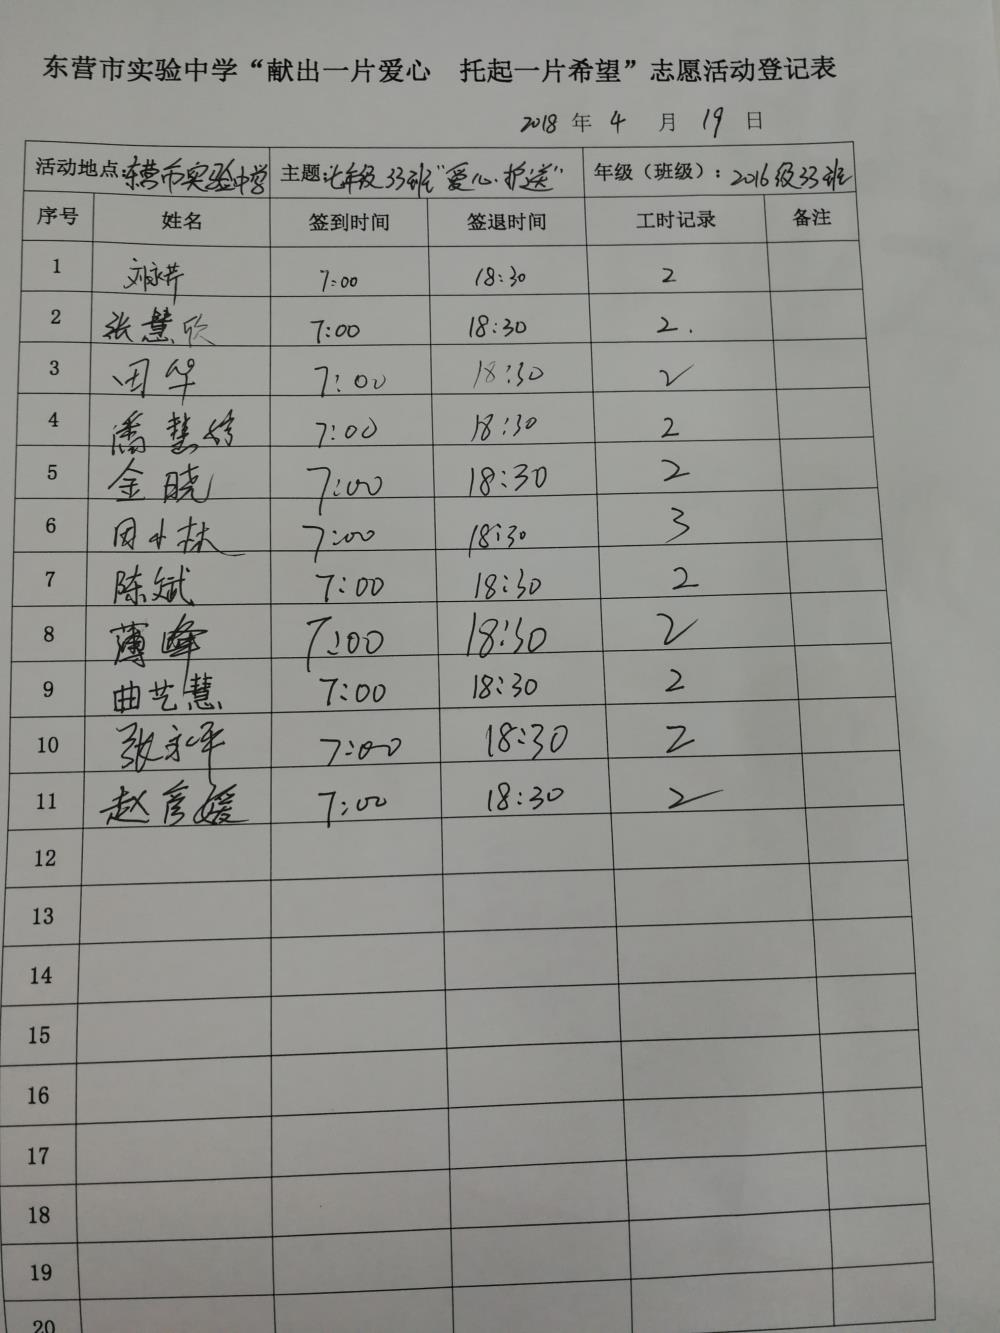 东营市实验中学“献出一片爱心 托起一片希望”志愿活动登记表
2018 年 4 月 19 日
活动地点:东营市实验中学 主题:七年级33班“爱心·护送” 年级（班级）:2016级33班
序号 姓名 签到时间 签退时间 工时记录 备注
1 7:00 18:30 2
2 张慧欣 7:00 18:30 2.
3 田华 7:00 18:30 2
4 潘慧婷 7:00 18:30 2
5 金晓 7:00 18:30 2
6 田小林 7:00 18:30 3
7 陈斌 7:00 18:30 2
8 薄峰 7:00 18:30 2
9 曲艺慧 7:00 18:30 2
10 张永平 7:00 18:30 2
11 赵彦媛 7:00 18:30 2
12
13
14
15
16
17
18
19
20